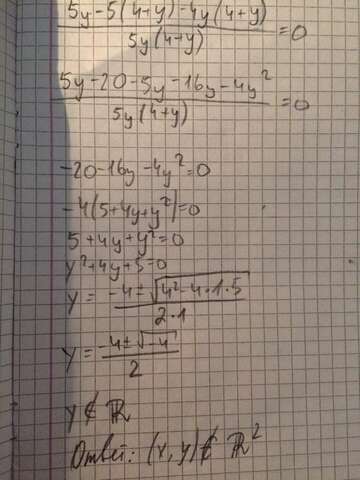 5y-5(4+y)-4y(4+y) / 5y(4+y) = 0
5y-20-5y-16y-4y² / 5y(4+y) = 0
-20-16y-4y²=0
-4(5+4y+y²)=0
5+4y+y²=0
y²+4y+5=0
y = -4±√(4²-4·1·5) / 2·1
y = -4±√-4 / 2
y ∉ ℝ
Ответ: (x,y)∉ ℝ²